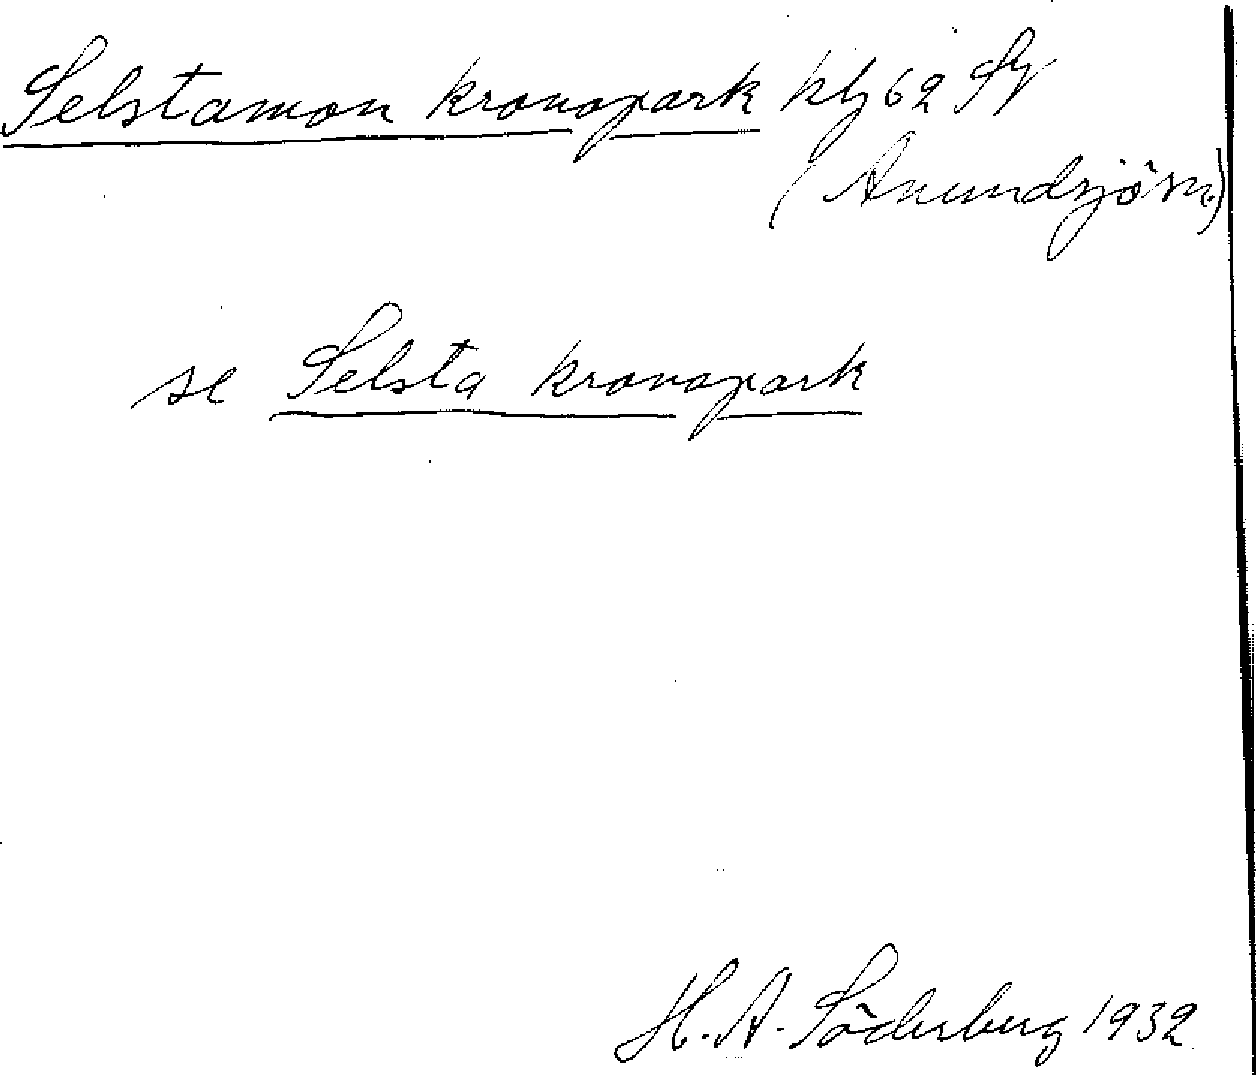 Selstamon kronopark hlz 62 Sy
(Anundsjö sn.)
se Selsta kronopark
H. A. Söderberg 1932